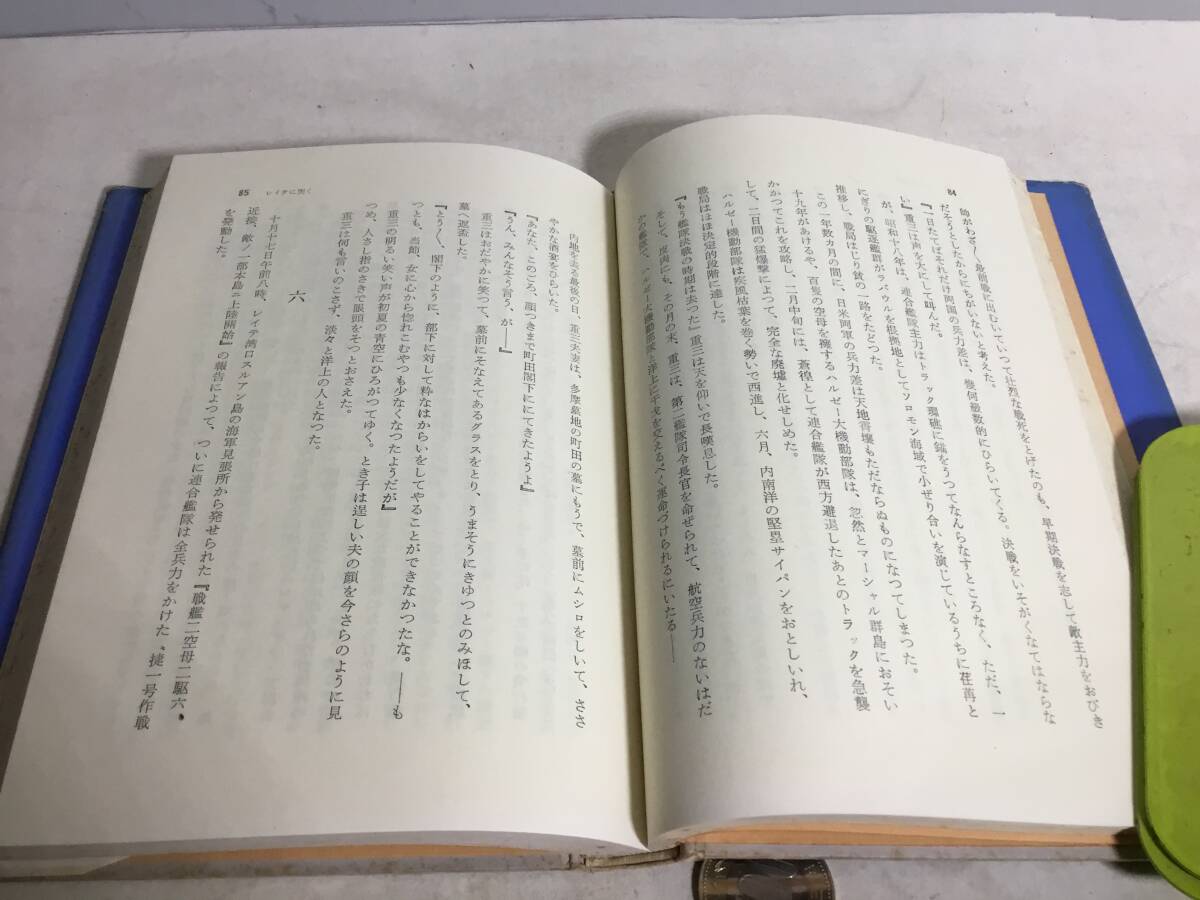 84
帥がわざ〳〵最前戦に出むいていつて壮烈な戦死をとげたのも、早期決戦を志して敵主力をおびき
だそうとしたからにちがいないと考えた。
『一日たてばそれだけ両国の兵力差は、幾何級数的にひらいてくる。決戦をいそがくなてはならな
い』重三は声を大にして叫んだ。
が、昭和十八年は、連合艦隊主力はトラック環礁に錨をうつてなんらなすところなく、ただ、一
にぎりの駆逐艦群がラバウルを根拠地としてソロモン海域で小ぜり合いを演じているうちに荏苒と
推移し、戦局はじり貧の一路をたどつた。
この一年数カ月の間に、日米両軍の兵力差は天地霄壤もただならぬものになつてしまつた。
十九年があけるや、百隻の空母を擁するハルゼー大機動部隊は、忽然とマーシャル群島におそい
かかつてこれを攻略し、二月中旬には、蒼徨として連合艦隊が西方避退したあとのトラックを急襲
して、二日間の猛爆撃によつて、完全な廃墟と化せしめた。
ハルゼー機動部隊は疾風枯葉を巻く勢いで西進し、六月、内南洋の堅塁サイパンをおとしいれ、
戦局はほぼ決定的段階に達した。
『もう艦隊決戦の時期は去つた』重三は天を仰いで長嘆息した。
そして、皮肉にも、その月の末、重三は、第二艦隊司令長官を命ぜられて、航空兵力のないはだ
かの艦隊で、ハルゼー大機動部隊と洋上に干戈を交えるべく運命づけられるにいたる――
85 レイテに哭く
内地を去る最後の日、重三夫妻は、多摩墓地の町田の墓にもうで、墓前にムシロをしいて、ささ
やかな酒宴をひらいた。
『あなた、このごろ、顔つきまで町田閣下ににてきたようよ』
『うん、みんなそう言う、が――』
重三はおだやかに笑つて、墓前にそなえてあるグラスをとり、うまそうにきゆつとのみほして、
墓へ返盃した。
『とう〳〵、閣下のように、部下に対して粋なはからいをしてやることができなかつたな。――も
つとも、当節、女に心から惚れこむやつも少なくなつたようだが』
重三の明るい笑い声が初夏の青空にひろがつてゆく。とき子は逞しい夫の顔を今さらのように見
つめ、人さし指のさきで眼頭をそつとおさえた。
重三は何も言いのこさず、淡々と洋上の人となつた。
六
十月十七日午前八時、レイテ湾口スルアン島の海軍見張所から発せられた『戦艦二空母二駆六、
近接、敵ノ一部本島ニ上陸開始』の報告によつて、ついに連合艦隊は全兵力をかけた〝捷一号作戦
を発動した。